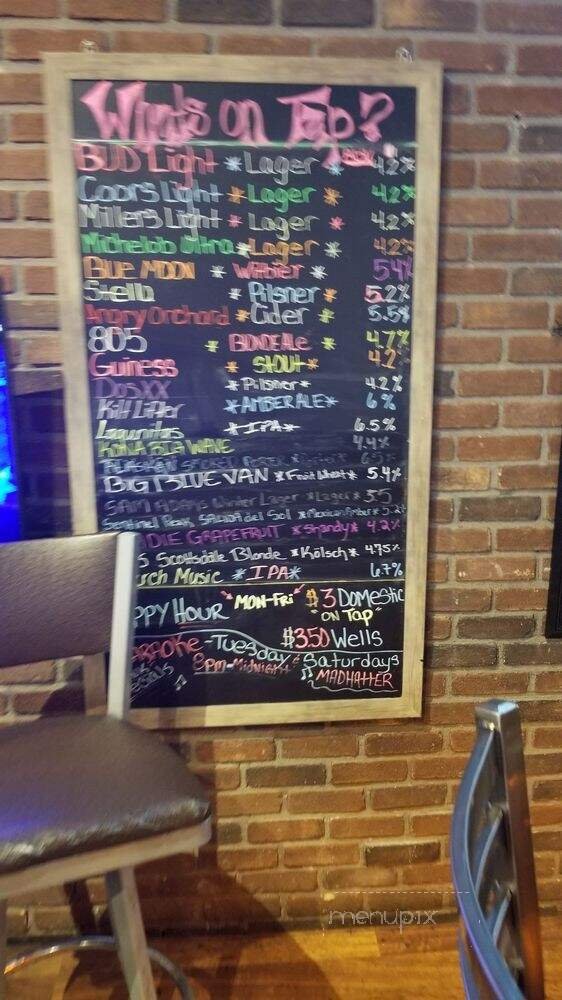 What's on Tap?
BUD Light * Lager * 4.2%
Coors Light * Lager * 4.2%
Millers Light * Lager * 4.2%
Michelob Ultra * Lager * 4.2%
BLUE MOON * Witbier * 5.4%
Stella * Pilsner * 5.2%
Angry Orchard * Cider * 5.5%
805 * BLONDE ALE * 4.7%
Guiness * STOUT * 4.2
DOS XX * Pilsner * 4.2%
Kilt Lifter * AMBER ALE * 6%
Lagunitas * IPA * 6.5%
KONA BIG WAVE 4.4%
ALASKAN SMOKED PORTER
BIG BLUE VAN * Fruit Wheat * 5.4%
SAM ADAMS Winter Lager * Lager * 5.5
Sentinel Peak SALIDA del Sol * Mexican Amber * 5.2%
DIE GRAPEFRUIT * Shandy * 4.2%
S Scottsdale Blonde * Kölsch * 4.75%
rch Music * IPA * 6.7%
PPY HOUR MON-Fri $3 DOMESTIC
"ON TAP"
$3.50 Wells
ARAOKE - Tuesday & Saturdays
8PM-MIDNIGHT MADHATTER
menupix